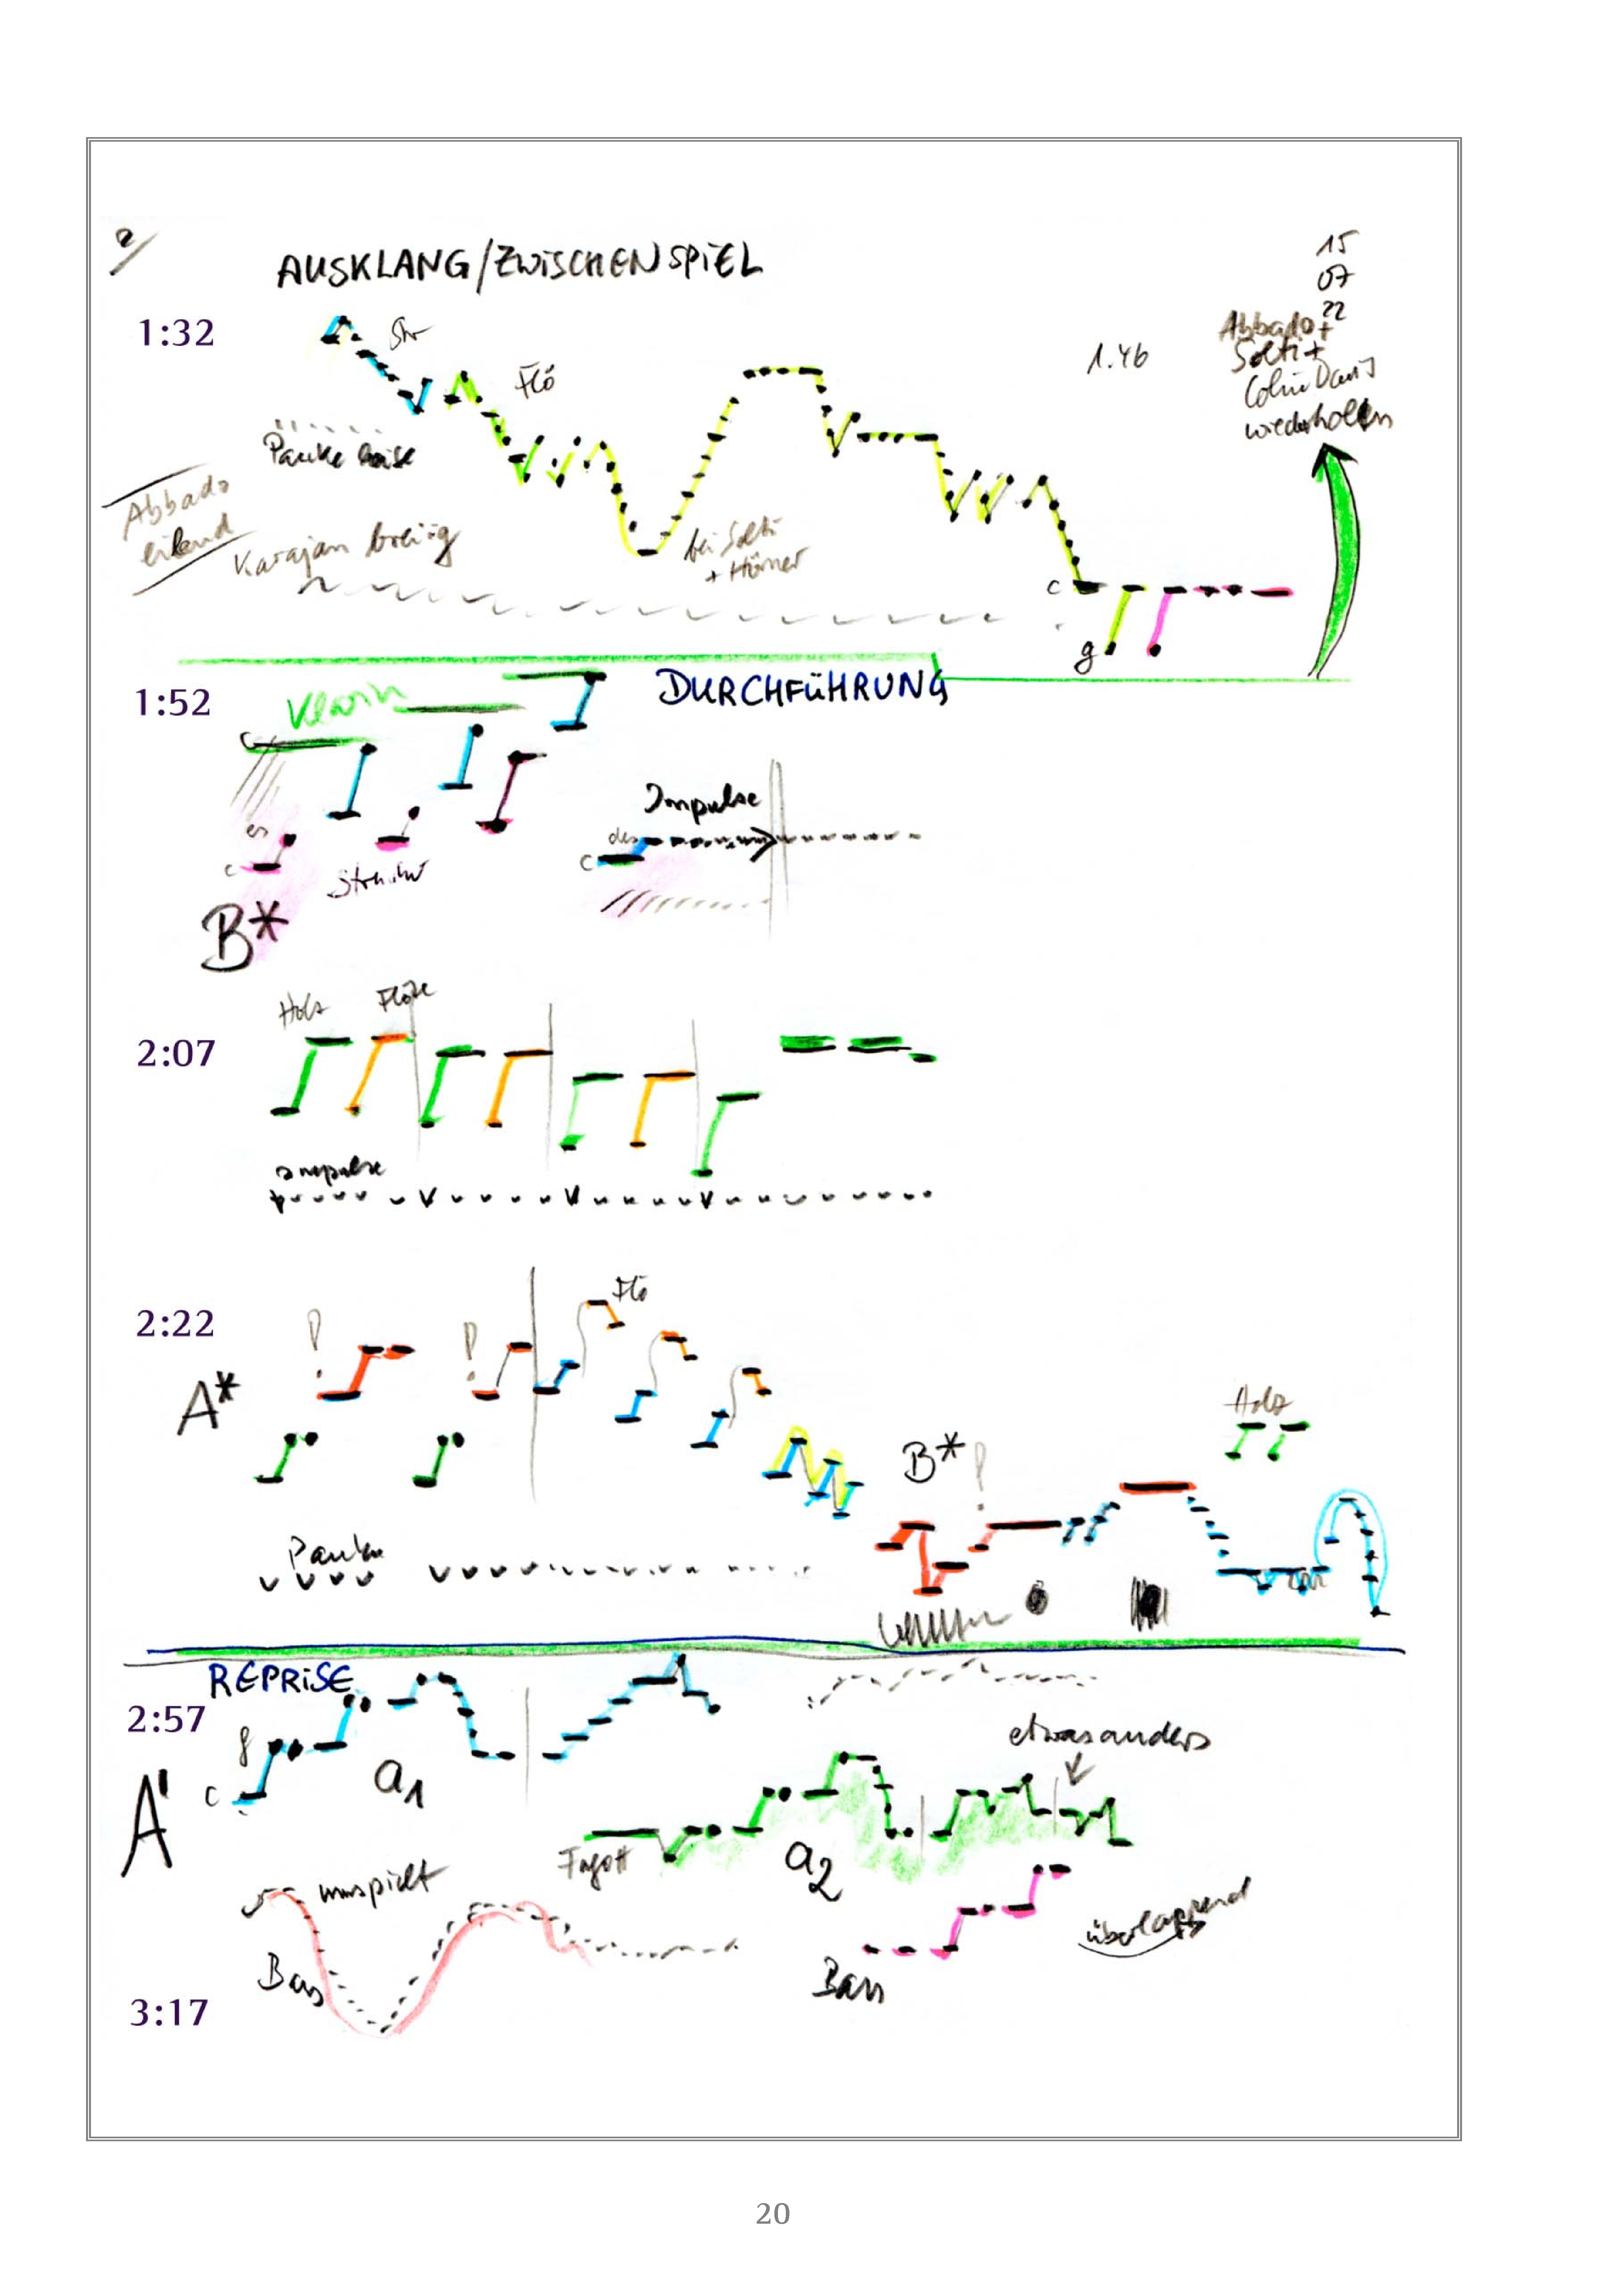 2/
AUSKLANG/ZWISCHENSPIEL
15
07
22
1:32
Str
Flö
1.46
Abbado +
Solti +
Colin Davis
wiederholen
Pauke leise
Abbado
eilend
Karajan breiig
bei Solti
+ Hörner
c
g
DURCHFÜHRUNG
1:52
Klarin
Impulse
es
c
des
c
Streicher
B*
Holz
Flöte
2:07
Impulse
Flö
2:22
!
!
A*
Holz
B*
!
Pauke
REPRISE
2:57
f
c
a1
etwas anders
A'
Fagott
a2
umspielt
überlappend
Bass
Bass
3:17
20